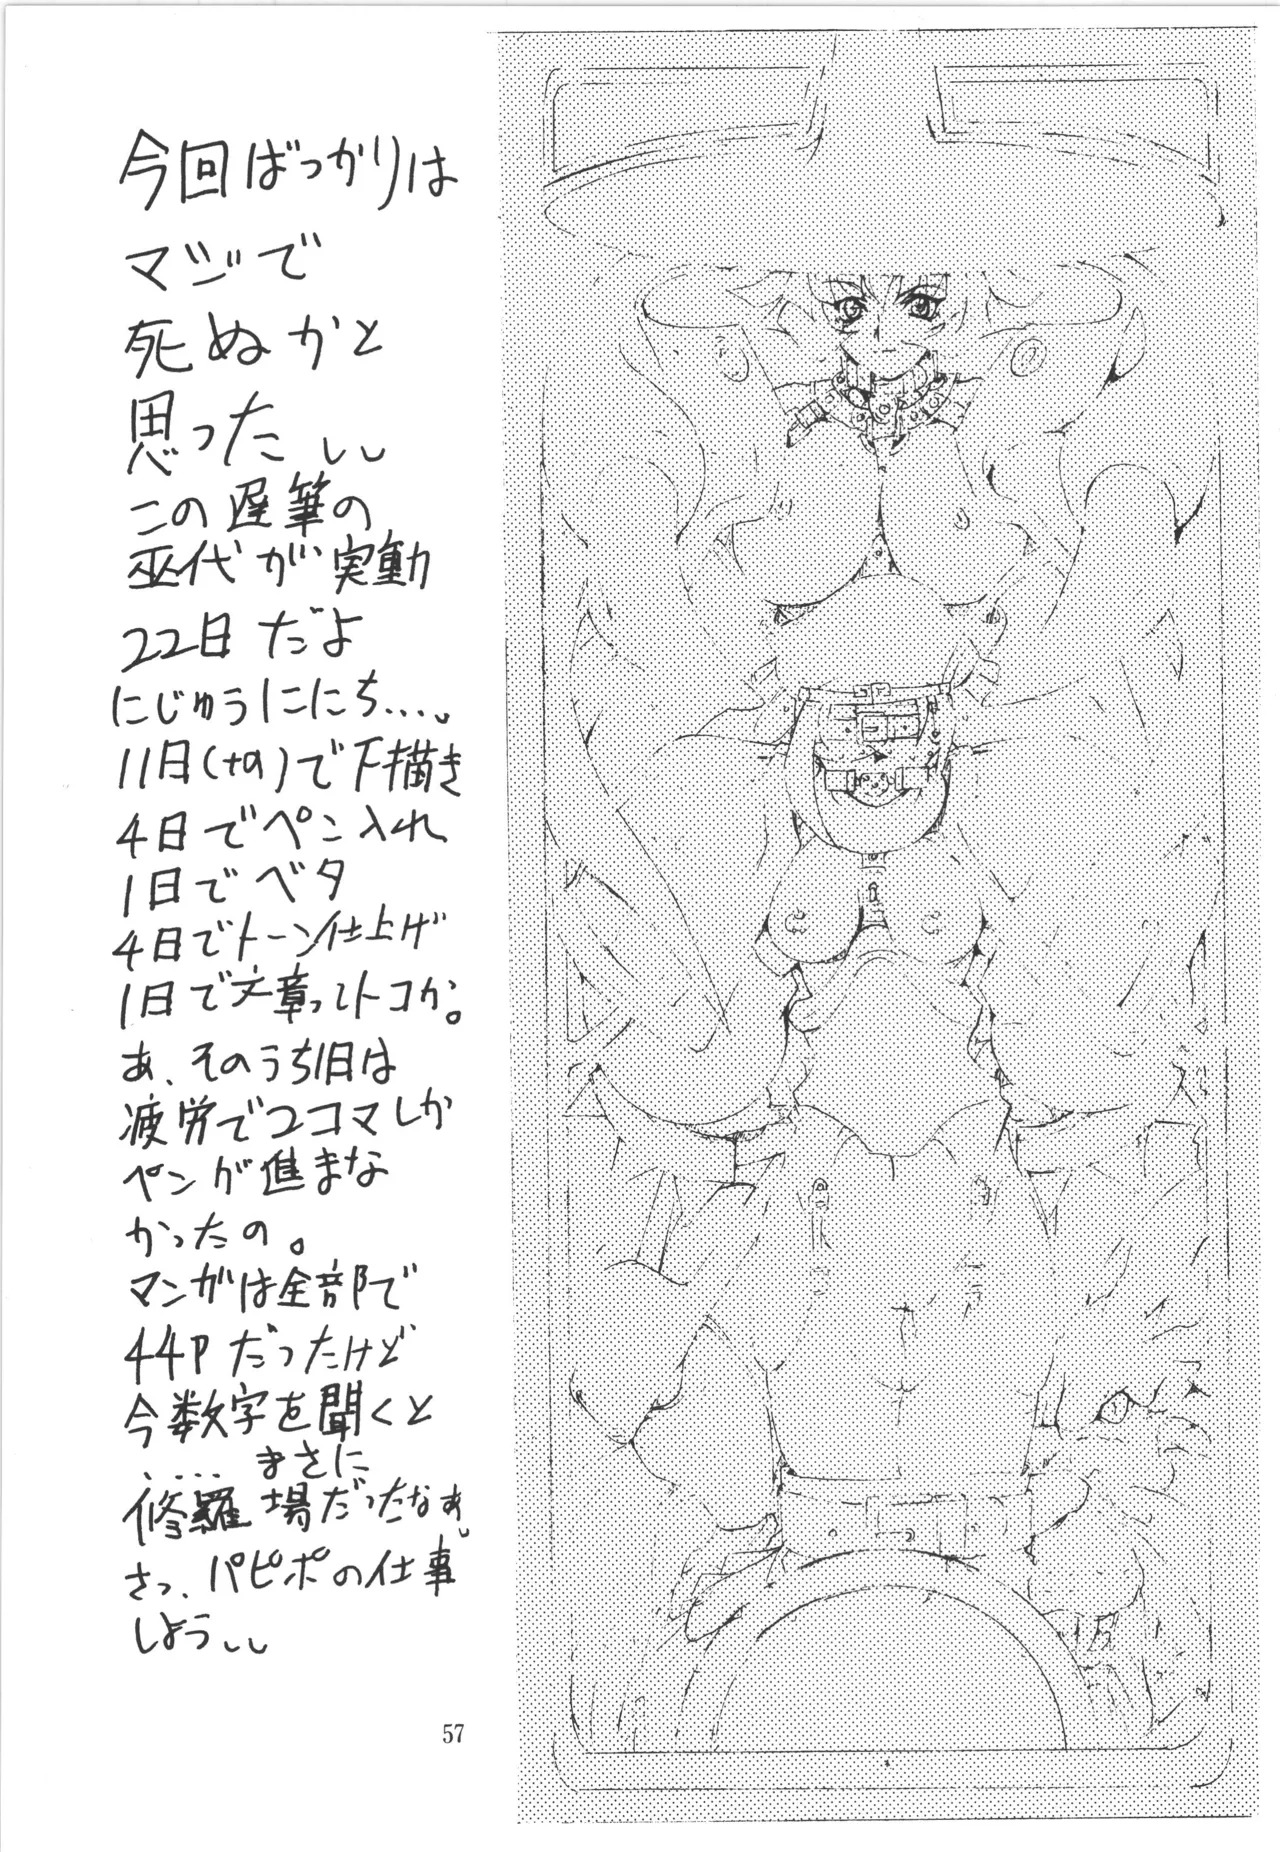 今回ばっかりは
マジで
死ぬかと
思ったぃぃ
この遅筆の
巫代が実動
22日だよ
にじゅうににち....。
11日(+α)で下描き
4日でペン入れ
1日でベタ
4日でトーン仕上げ
1日で文章ってトコか。
あ、そのうち1日は
疲労で2コマしか
ペンが進まな
かったの。
マンガは全部で
44Pだったけど
今数字を聞くと
....まさに
修羅場だったなぁ。
さっ、パピポの仕事
しよう、、
57